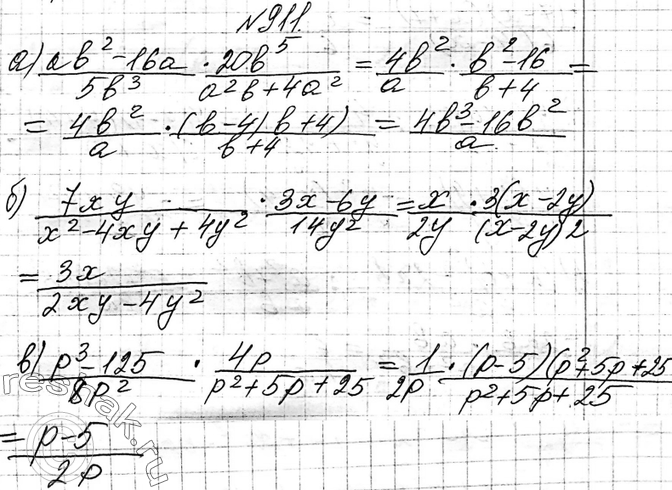 №911.
а) (ab² - 16a)/(5b³) · (20b⁵)/(a²b + 4a²) = (4b²)/a · (b² - 16)/(b + 4) =
= (4b²)/a · ((b - 4)(b + 4))/(b + 4) = (4b³ - 16b²)/a.
б) (7xy)/(x² - 4xy + 4y²) · (3x - 6y)/(14y²) = x/(2y) · (3(x - 2y))/((x - 2y)2)
= (3x)/(2xy - 4y²)
в) (p³ - 125)/(8p²) · (4p)/(p² + 5p + 25) = 1/(2p) · ((p - 5)(p² + 5p + 25)/(p² + 5p + 25)
= (p - 5)/(2p)
reshak.ru